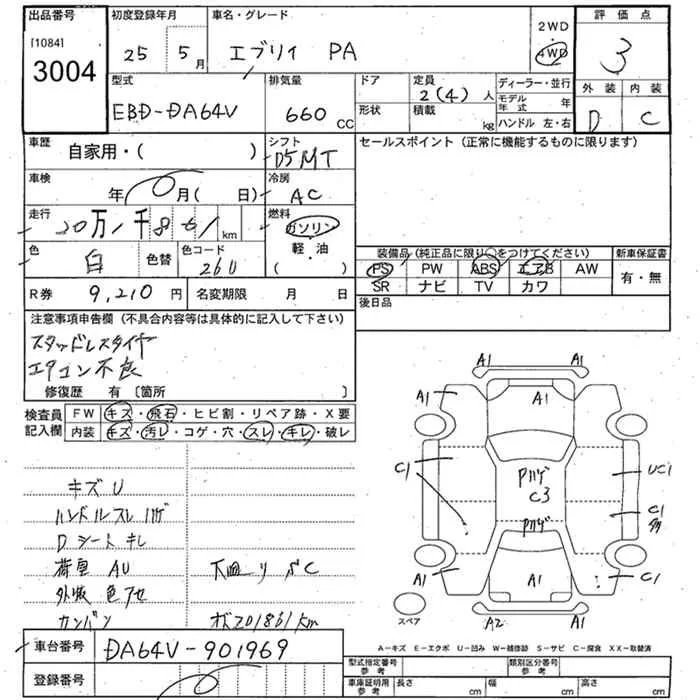 出品番号 初度登録年月 車名・グレード 2WD 評価点
[1084] 25 5月 エブリイ PA 4WD 3
3004
型式 排気量 ドア 定員 ディーラー・並行 外装 内装
EBD-DA64V 660 CC 2(4)人 モデル年式 年 D C
形状 積載 kg ハンドル 左・右
車歴 自家用・( ) シフト D5MT セールスポイント(正常に機能するものに限ります)
車検 年 月( 日) 冷房 AC
走行 20万1千861km 燃料 ガソリン
色 白 色替 色コード 26U 軽・油
( )
装備品(純正品に限り○をつけてください) 新車保証書
PS PW ABS エアB AW 有・無
SR ナビ TV カワ
R券 9,210円 名変期限 月 日 後日品
注意事項申告欄(不具合内容等は具体的に記入して下さい)
スタッドレスタイヤ
エアコン不良
修復歴 有〔箇所 〕
検査員記入欄 FW キズ・飛石・ヒビ割・リペア跡・X要
内装 キズ・汚レ・コゲ・穴・スレ・キレ・破レ
キズU
ハンドルスレ ハゲ
Dシート キレ
荷室 AU
外板 色アセ
カンバン
下廻り SC
オド201861km
A1 A1
A1 A1 A1
C1 Pハゲ UC1
C3
Pハゲ C1
A1 A1 C1
スペア A2 A1
A-キズ E-エクボ U-凹み W-補修跡 S-サビ C-腐食 XX-交換済
車台番号 DA64V-901969
型式指定番号 参考 類別区分番号 参考
登録番号
車庫証明用 参考 長さ cm 幅 cm 高さ cm